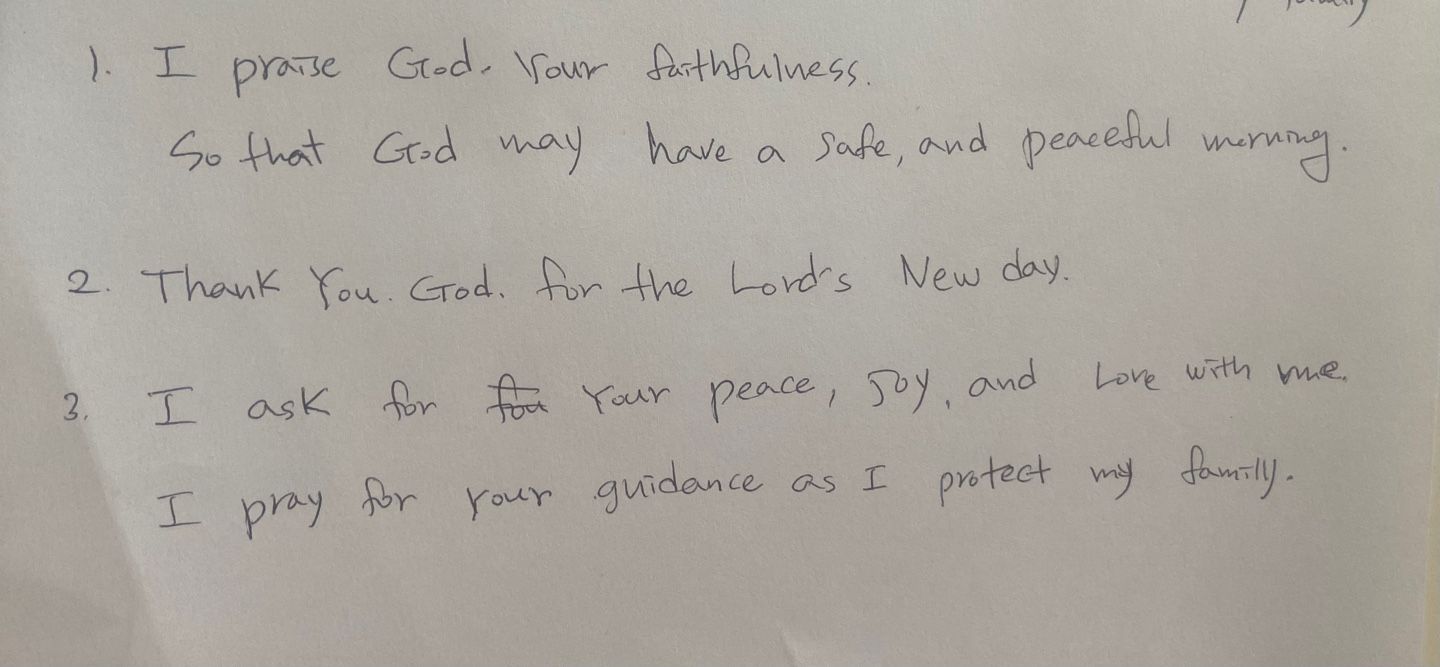 1. I praise God. Your faithfulness.
So that God may have a safe, and peaceful morning.
2. Thank You. God. for the Lord's New day.
3. I ask for Your peace, Joy, and Love with me.
I pray for your guidance as I protect my family.